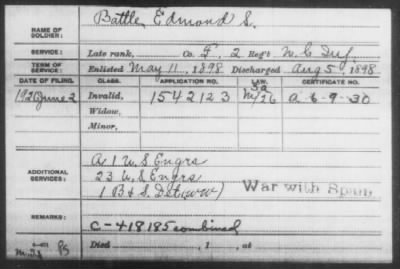 Battle, Edmond S.
NAME OF SOLDIER:
SERVICE: Late rank, Co. F. 2 Reg't N.C. Inf.
TERM OF SERVICE: Enlisted May 11, 1898 Discharged Aug 5, 1898
DATE OF FILING. CLASS. APPLICATION NO. LAW. CERTIFICATE NO.
1920 June 2 Invalid, 1542123 A-6-9-30
Widow,
Minor,
A 1 U.S. Engrs
ADDITIONAL SERVICES: 23 U.S. Engrs
1 B & S. Det (WW)
War with Spain
REMARKS: C-418185 combined
Died , 1 , at